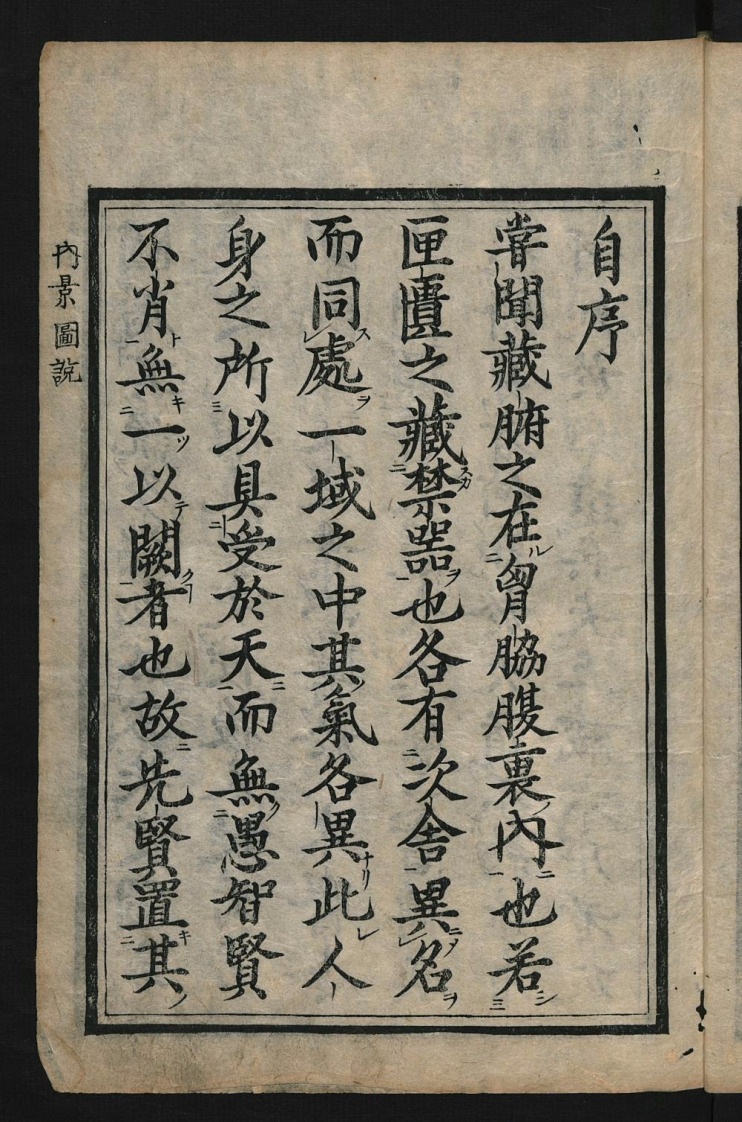 自序
甞聞藏腑之在胷脇腹裏內也若
匣匱之藏禁噐也各有次舍異名
而同處一域之中其氣各異此人
身之所以具受於天而無愚智賢
不肖無一以闕者也故先賢置其
內景圖說